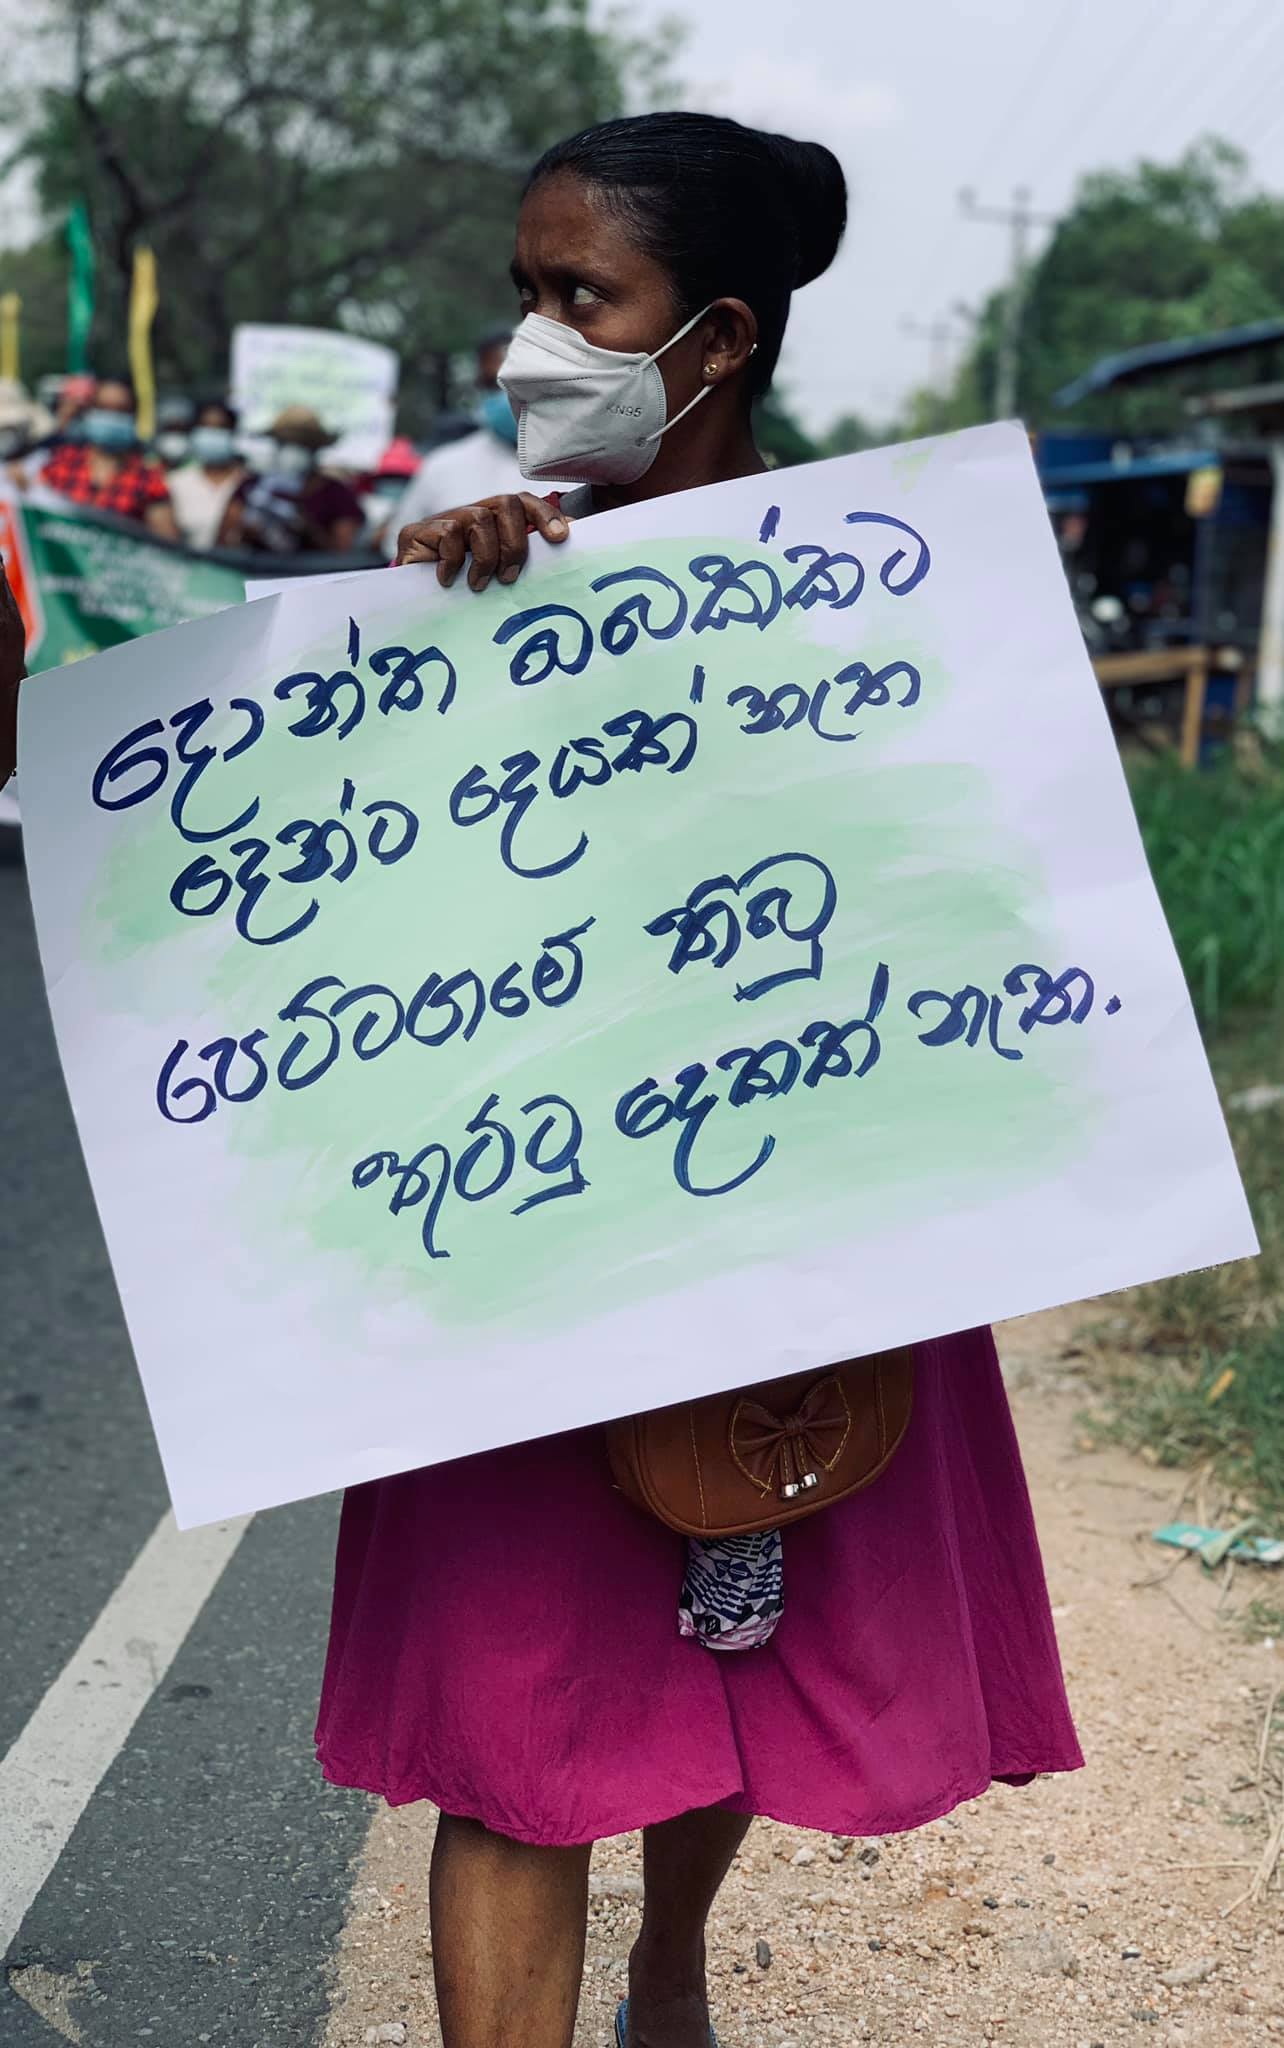 දොන්ත ඔබෙක්කට
දෙන්ට දෙයක් නැත
පෙට්ටගමේ තිබු
තුට්ටු දෙකත් නැත.
KN95